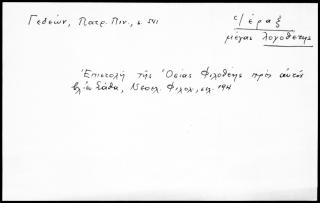 Γεδεών, Πατρ. Πιν., σ. 541
Ἱέραξ
μέγας λογοθέτης
Ἐπιστολὴ τῆς Ὁσίας Φιλοθέης πρὸς αὐτόν
βλ. ἐν Σάθα, Νεοελ. Φιλολ., σελ. 194